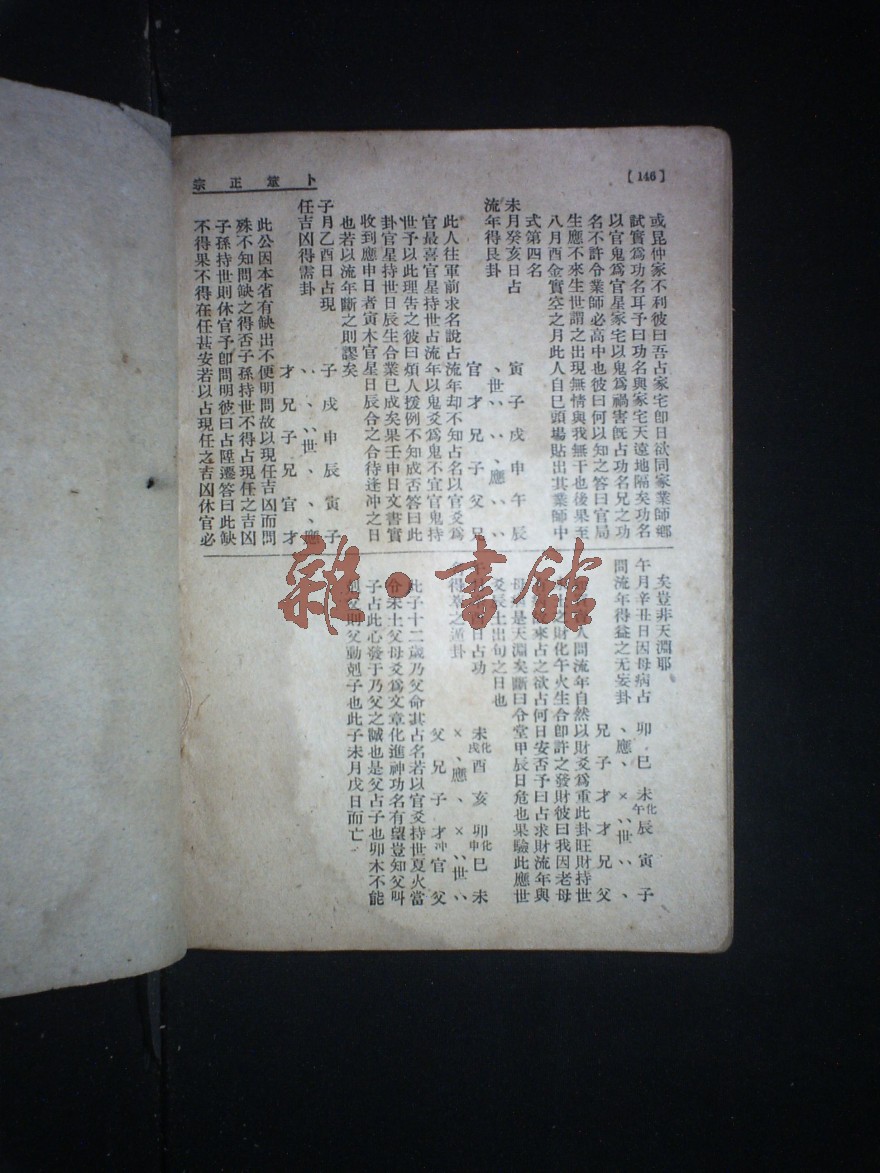 【146】
卜筮正宗
或昆仲家不利彼曰吾占家宅卽日欲同家業師鄉
試實爲功名耳予曰功名與家宅天遠地隔矣功名
以官鬼爲官星家宅以鬼爲禍害旣占功名兄之功
名不許令業師必高中也彼曰何以知之答曰官局
生應不來生世謂之出現無情與我無干也後果至
八月酉金實空之月此人自巳頭場貼出其業師中
式第四名
未月癸亥日占
流年得艮卦
寅子戌申午辰
、世、、、、、應、、、、
官才兄子父兄
此人往軍前求名說占流年却不知占名以官爻爲
官最喜官星持世占流年以鬼爻爲鬼不宜官鬼持
世予以此理告之彼曰煩人援例不知成否答曰此
卦官星持世日辰生合業已成矣果壬申日文書實
收到應申日者寅木官星日辰合之合待逢冲之日
也若以流年斷之則謬矣
子月乙酉日占現
任吉凶得需卦
子戌申辰寅子
、、、、、世、、、應
才兄子兄官才
此公因本省有缺出不便明問故以現任吉凶而問
殊不知問缺之得否子孫持世不得占現任之吉凶
子孫持世則休官予卽問明彼曰占陞遷答曰此缺
不得果不得在任甚安若以占現任之吉凶休官必
矣豈非天淵耶
午月辛丑日因母病占
問流年得益之无妄卦
卯巳未化午辰寅子
、應、×、、世、、、
兄子才才兄父
人問流年自然以財爻爲重此卦旺財持世
之財化午火生合卽許之發財彼曰我因老母
來占之欲占何日安否予曰占求財流年與
母 是天淵矣斷曰令堂甲辰日危也果驗此應世
爻 土出旬之日也
日占功
得 之遁卦
未化戌酉亥卯化申巳未
×、應、×、、世、、
父兄子才冲官父
此子十二歲乃父命其占名若以官爻持世夏火當
令未土父母爻爲文章化進神功名有望豈知父叫
子占此心發于乃父之誠也是父占子也卯木不能
剋 則父動剋子也此子未月戊日而亡
雜·書館